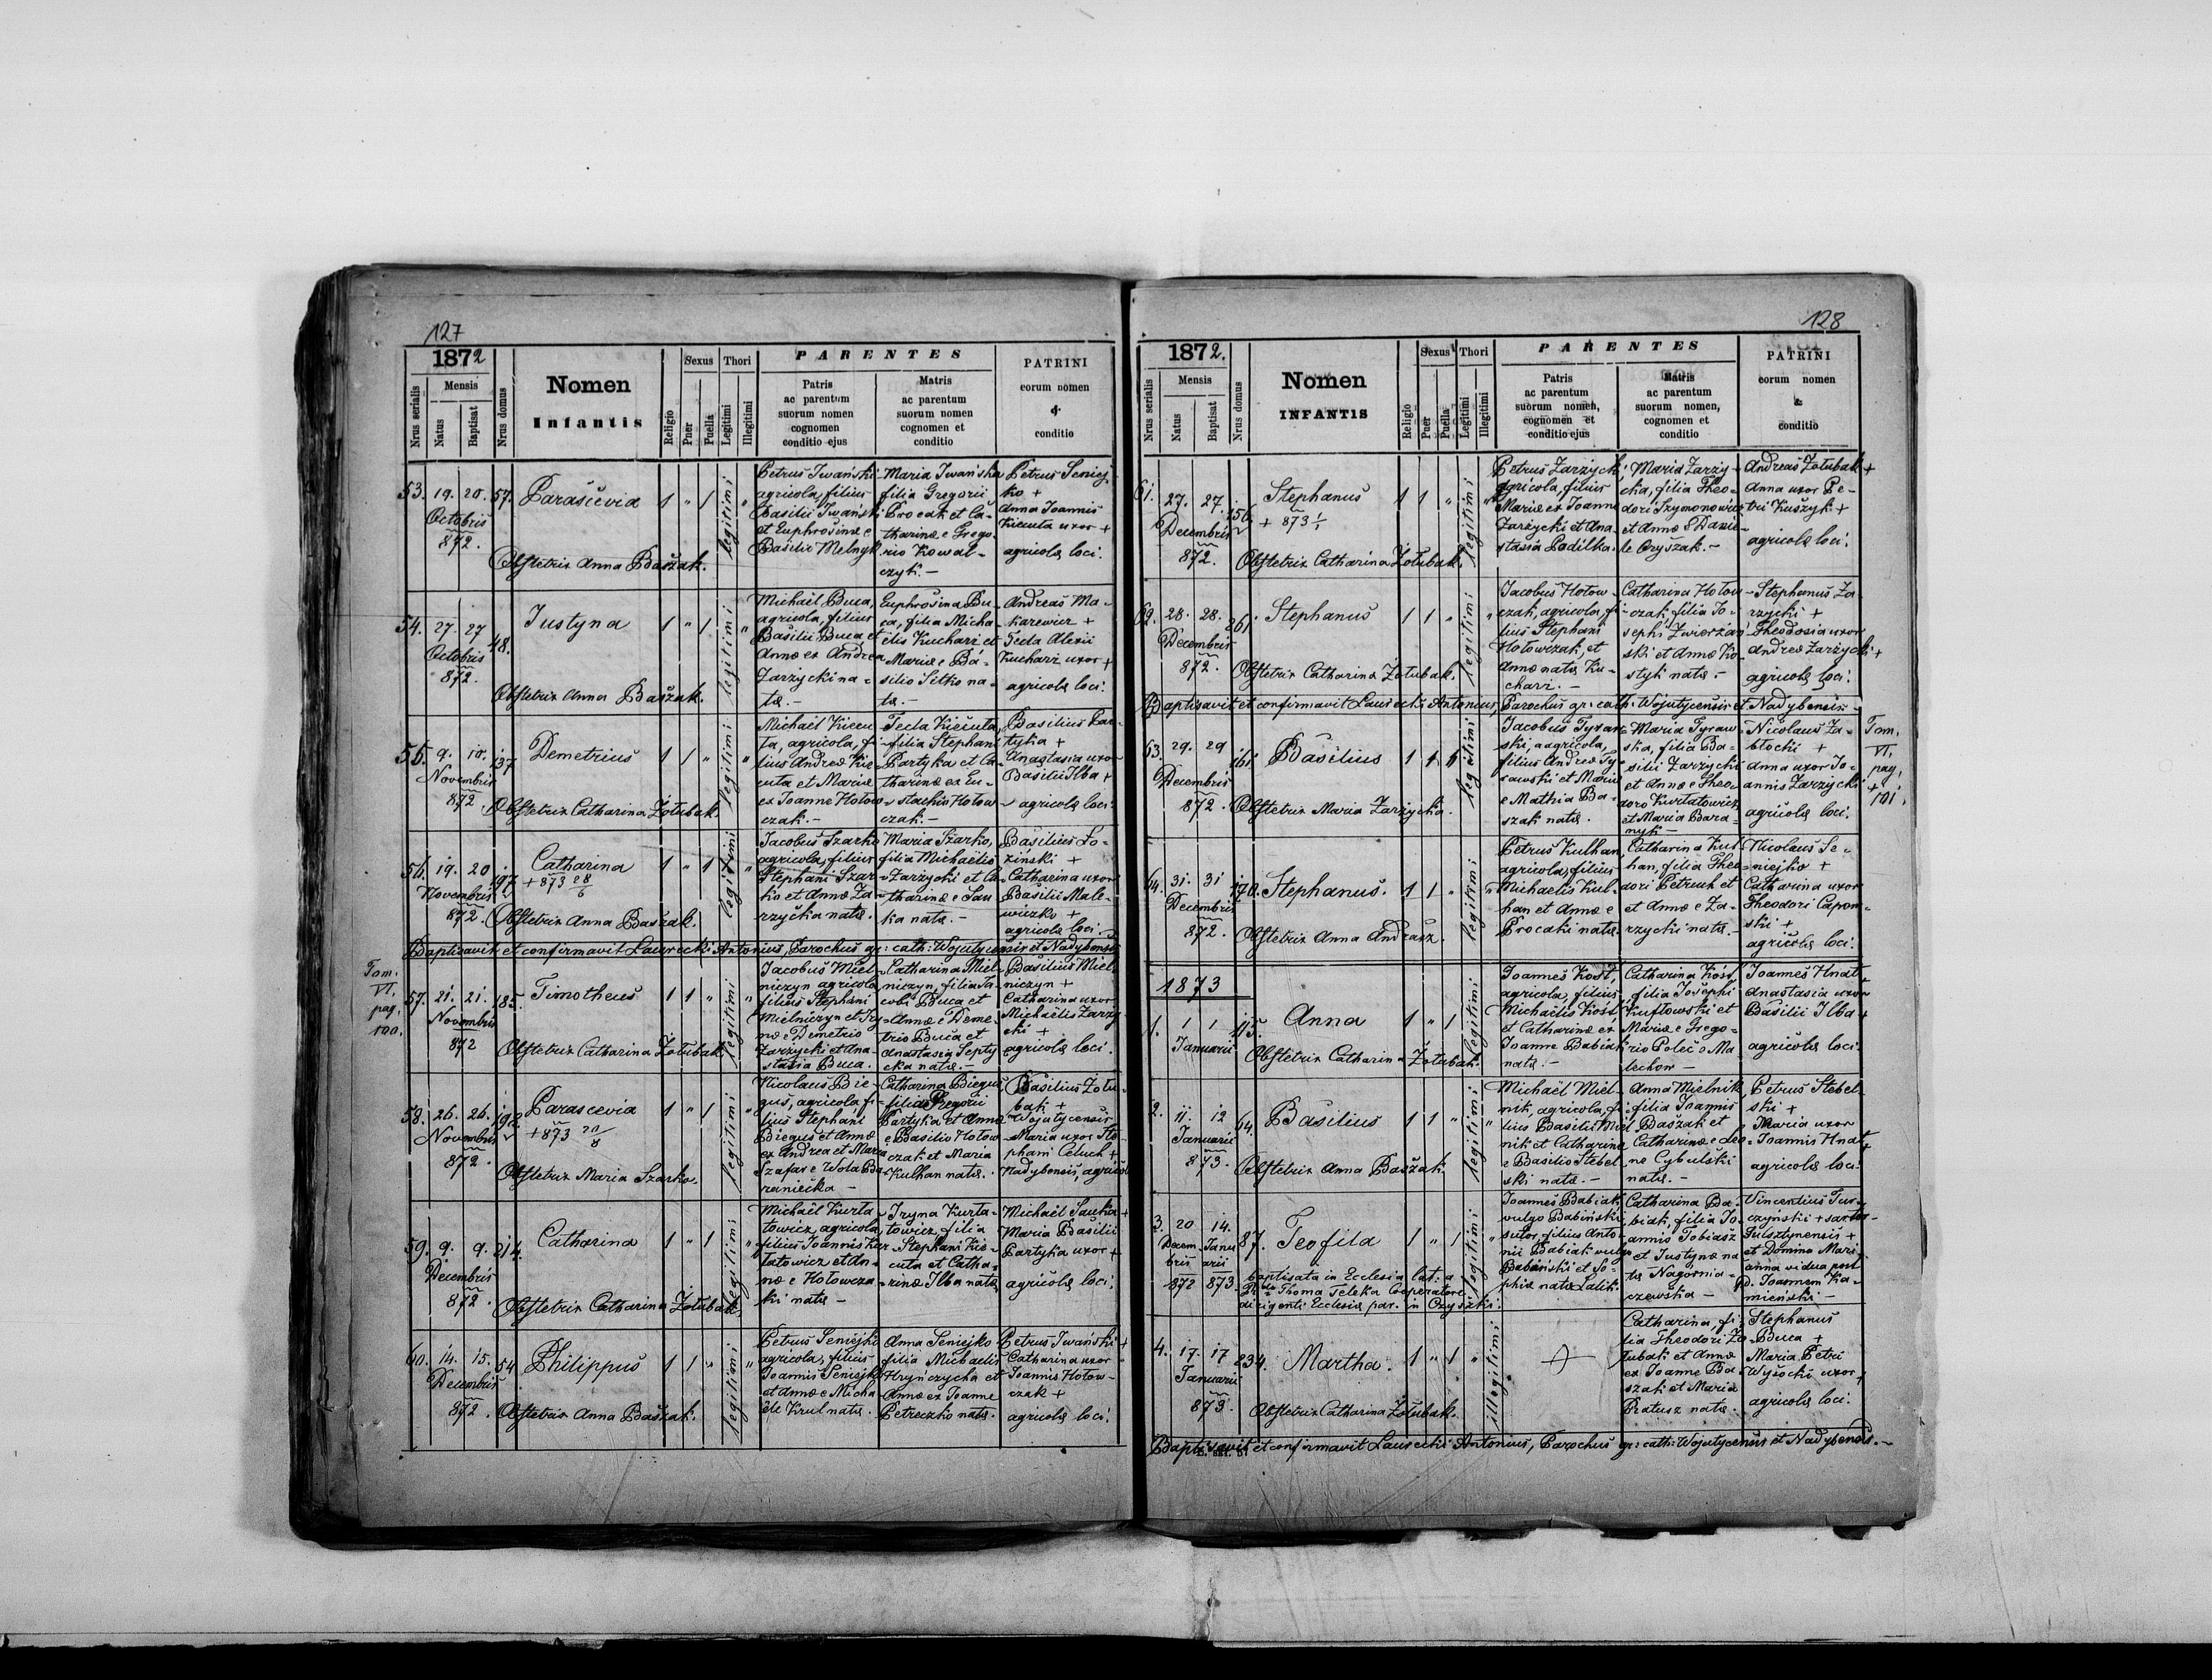 127
1872
Nrus serialis
Mensis
Natus
Baptisat
Nrus domus
Nomen
Infantis
Religio
Sexus
Puer
Puella
Thori
Legitimi
Illegitimi
PARENTES
Patris
ac parentum
suorum nomen
cognomen
conditio ejus
Matris
ac parentum
suorum nomen
cognomen et
conditio
PATRINI
eorum nomen
&
conditio
53. 19. 20. 57. Parascevia 1 " 1 legitimi "
Octobris
872.
Obstetrix Anna Baszak.
Petrus Iwański
agricola, filius
Basilii Iwański
et Euphrosinæ e
Basilio Melnyk
Maria Iwańska
filia Gregorii
Procak et Ca-
tharinæ e Grego-
rio Kowal-
czyk.-
Petrus Seniej-
ko +
Anna Joannis
Kicuta uxor +
agricolæ loci.
54. 27. 27 48. Justyna 1 " 1 legitimi "
Octobris
872.
Obstetrix Anna Baszak.
Michaël Buca,
agricola, filius
Basilii Buca et
Annæ ex Andrea
Zarzycki na-
tæ.-
Euphrosina Bu-
ca, filia Micha-
ëlis Kucharz et
Mariæ e Ba-
silio Sitko na-
tæ.-
Andreas Ma-
karewicz +
Tecla Alexii
Kucharz uxor +
agricolæ loci.
55. 9. 10. 137 Demetrius 1 1 " legitimi "
Novembris
872.
Obstetrix Catharina Żołubak.
Michaël Kicu-
ta, agricola, fi-
lius Andreæ Kic-
uta et Mariæ
ex Joanne Hołow-
czak.-
Tecla Kicuta
filia Stephani
Partyka et Ca-
tharinæ ex Eu-
stachio Hołow-
czak.-
Basilius Par-
tyka +
Anastasia uxor
Basilii Ilba +
agricolæ loci.
56. 19. 20 197 Catharina 1 " 1 legitimi "
+ 873 28/6
Novembris
872.
Obstetrix Anna Baszak.
Jacobus Szarko
agricola, filius
Stephani Szar-
ko et Annæ Za-
rzycka natæ.
Maria Szarko,
filia Michaëlis
Zarzycki et Ca-
tharinæ e Sau-
ka natæ.-
Basilius Ło-
ziński +
Catharina uxor
Basilii Male-
wiczko +
agricolæ loci.
Baptisavit et confirmavit Laurecki Antonius, Parochus gr: cath: Wojutycensis et Nadybensis
Tom.
VI.
pag.
100.
57. 21. 21. 185. Timotheus 1 1 " legitimi "
Novembris
872
Obstetrix Catharina Żołubak
Jacobus Miel-
niczyn agricola
filius Stephani
Mielniczyn et Iry-
næ e Demetrio
Zarzycki et Ana-
stasia Buca.
Catharina Miel-
niczyn, filia Ja-
cobi Buca et
Annæ e Deme-
trio Buca et
Anastasia Septy
cka natæ.-
Basilius Miel-
niczyn +
Catharina uxor
Michaëlis Zarzy-
cki +
agricolæ loci.
58. 26. 26. 192 Parascevia 1 " 1 legitimi "
+ 873 20/8
Novembris
872.
Obstetrix Maria Szarko.
Nicolaus Bie-
gus, agricola fi-
lius Stephani
Biegus et Annæ
ex Andrea et Maria
Szafar e Wola Ba-
raniecka -
Catharina Biegus,
filia Gregorii
Partyka et Annæ
e Basilio Hołow-
czak et Maria
Kulhan natæ.
Basilius Żołu-
bak +
Wojutycensis
Maria uxor Ste-
phani Celuch +
Nadybensis, agricolæ
59. 9. 9. 214. Catharina 1 " 1 legitimi "
Decembris
872.
Obstetrix Catharina Żołubak.
Michaël Kurta-
towicz, agricola
filius Joannis Kur-
tatowicz et An-
næ e Hołowcza-
ki natæ -
Iryna Kurta-
towicz, filia
Stephani Kic-
uta et Catha-
rinæ Ilba natæ
Michaël Sauka +
Maria Basilii
Partyka uxor +
agricolæ loci.
60. 14. 15. 54 Philippus 1 1 " legitimi "
Decembris
872.
Obstetrix Anna Baszak.
Petrus Seniejko
agricola, filius
Joannis Seniejko
et Annæ e Micha-
ële Krul natæ.
Anna Seniejko
filia Michaëlis
Hryńczycha et
Annæ ex Joanne
Petreczko natæ.
Petrus Iwański +
Catharina uxor
Joannis Hołow-
czak +
agricolæ loci.
128
1872.
Nrus serialis
Mensis
Natus
Baptisat
Nrus domus
Nomen
INFANTIS
Religio
Sexus
Puer
Puella
Thori
Legitimi
Illegitimi
PARENTES
Patris
ac parentum
suorum nomen,
cognomen et
conditio ejus
Matris
ac parentum
suorum nomen,
cognomen et
conditio
PATRINI
eorum nomen
&
conditio
61. 27. 27. 156. Stephanus 1 1 " legitimi "
+ 873 1/1
Decembris
872.
Obstetrix Catharina Żołubak.
Petrus Zarzycki,
agricola, filius
Mariæ ex Joanne
Zarzycki et Ana-
stasia Padilka.
Maria Zarzy-
cka, filia Theo-
dori Szymonowicz
et Annæ e Danie-
le Oryszak.-
Andreas Żołubak +
Anna uxor Pe-
tri Kuszyk +
agricolæ loci.
62. 28. 28. 261. Stephanus 1 1 " legitimi "
Decembris
872.
Obstetrix Catharina Żołubak.
Jacobus Hołow-
czak, agricola, fi-
lius Stephani
Hołowczak, et
Annæ natæ Ku-
charz.-
Catharina Hołow-
czak, filia Jo-
sephi Zwierzań-
ski et Annæ Ko-
styk natæ.-
Stephanus Za-
rzycki +
Theodosia uxor
Andreæ Zarzycki +
agricolæ loci.
Baptisavit et confirmavit Laurecki Antonius, Parochus gr: cath: Wojutycensis et Nadybensis.-
63. 29. 29 161. Basilius 1 1 " legitimi
Decembris
872.
Obstetrix Maria Zarzycka.
Jacobus Tyraw-
ski, agricola,
filius Andreæ Ty-
rawski et Mariæ
e Mathia Ba-
szak natæ.
Maria Tyraw-
ska, filia Ba-
silii Zarzycki
et Annæ e Theo-
doro Kurtatowicz
et Maria Bara-
nyk-
Nicolaus Za-
błocki +
Anna uxor Jo-
annis Zarzycki +
agricolæ loci.
Tom.
VI.
pag.
101.
64. 31. 31 170. Stephanus. 1 1 " legitimi "
Decembris
872.
Obstetrix Anna Andrasz.
Petrus Kulhan,
agricola, filius
Michaëlis Kul-
han et Annæ e
Procaki natæ
Catharina Kul-
han, filia Theo-
dori Petruch et
et Annæ e Za-
rzycki natæ.-
Nicolaus Se-
niejko +
Catharina uxor
Theodori Capow-
ski +
agricolæ loci.
1873
1. 1 1 115. Anna 1 " 1 legitimi
Januarii
Obstetrix Catharina Żołubak.
Joannes Kost,
agricola, filius
Michaëlis Kost
et Catharinæ ex
Joanne Babiak
natæ.-
Catharina Kost,
filia Josephi
Kustowski et
Mariæ e Grego-
rio Poleć o Ma-
lechow -
Joannes Hnat +
Anastasia uxor
Basilii Ilba +
agricolæ loci.
2. 11. 12 64. Basilius 1 1 " legitimi "
Januarii
873.
Obstetrix Anna Baszak.
Michaël Miel-
nik, agricola, fi-
lius Basilii Miel-
nik et Catharinæ
e Basilio Stebel-
ski natæ.-
Anna Mielnik,
filia Joannis
Baszak et
Catharinæ e Leo-
ne Cybulski
natæ.-
Petrus Stebel-
ski +
Maria uxor
Joannis Hnat +
agricolæ loci.
3. 20 14. 87. Teofila 1 " 1 legitimi "
Decem- Janu-
bris arii
872 873.
baptisata in Ecclesia lat: a
Rndo Thoma Teleka Cooperatore
dirigenti Ecclesiæ par. in Czyszki.
Joannes Babiak
vulgo Babiński,
sutor, filius Anto-
nii Babiak vulgo
Babiński et So-
phiæ natæ Lalik.
Catharina Ba-
biak, filia Jo-
annis Tobiasz
et Justynæ na-
tæ Nagornia-
czewska -
Vincentius Tur-
czyński + sartor
Fulsztynensis +
et Domina Mari-
anna vidua post
D. Joannem Ka-
mieński -
4. 17. 17 234. Martha. 1 " 1 " illegitimi
Januarii
873.
Obstetrix Catharina Żołubak.
Catharina, fi-
lia Theodori Żo-
łubak et Annæ
ex Joanne Ba-
szak et Maria
Bratusz natæ.
Stephanus
Buca +
Maria Petri
Wysocki uxor +
agricolæ loci.
Baptisavit et confirmavit Laurecki Antonius, Parochus gr: cath: Wojutycensis et Nadybensis.-